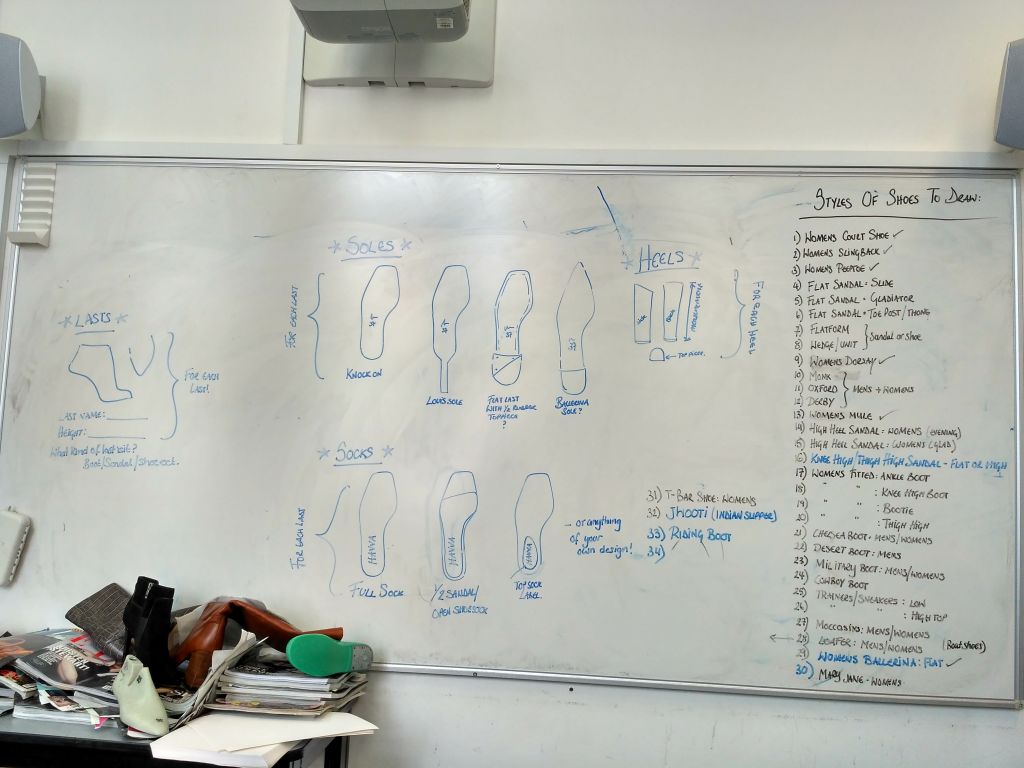 * LASTS *
FOR EACH LAST!
LAST NAME:
HEIGHT:
What kind of last is it?
Boot/Sandal/Shoe ect.
* SOLES *
FOR EACH LAST
KNOCK ON
LOUIS SOLE
FLAT LAST
WITH 1/2 RUBBER
TOPPIECE
?
BALLERINA
SOLE?
* HEELS *
TOPPIECE
FOR EACH HEEL
* SOCKS *
FOR EACH LAST
FULL SOCK
1/2 SANDAL/
OPEN SHOE SOCK
TOP SOCK
LABEL
- or anything
of your
own design!
31) T-BAR SHOE: WOMENS
32) JHOOTI (INDIAN SLIPPER)
33) RIDING BOOT
34)
STYLES OF SHOES TO DRAW:
1) WOMENS COURT SHOE ✓
2) WOMENS SLINGBACK ✓
3) WOMENS PEEPTOE ✓
4) FLAT SANDAL: SLIDE
5) FLAT SANDAL: GLADIATOR
6) FLAT SANDAL: TOE POST/THONG
7) FLATFORM
8) WEDGE/UNIT } Sandal or shoe
9) WOMENS DORSAY ✓
10) MONK
11) OXFORD } MENS + WOMENS
12) DERBY
13) WOMENS MULE ✓
14) HIGH HEEL SANDAL: WOMENS (EVENING)
15) HIGH HEEL SANDAL: WOMENS (GLAD)
16) KNEE HIGH/THIGH HIGH SANDAL - FLAT OR HIGH
17) WOMENS FITTED: ANKLE BOOT
18) " " : KNEE HIGH BOOT
19) " " : BOOTIE
20) " " : THIGH HIGH
21) CHELSEA BOOT: MENS/WOMENS
22) DESERT BOOT: MENS
23) MILITARY BOOT: MENS/WOMENS
24) COWBOY BOOT
25) TRAINERS/SNEAKERS: LOW
26) " " : HIGH TOP
27) MOCCASINS: MENS/WOMENS
28) LOAFER: MENS/WOMENS (Boat shoes)
29) WOMENS BALLERINA: FLAT ✓
30) MARY JANE - WOMENS